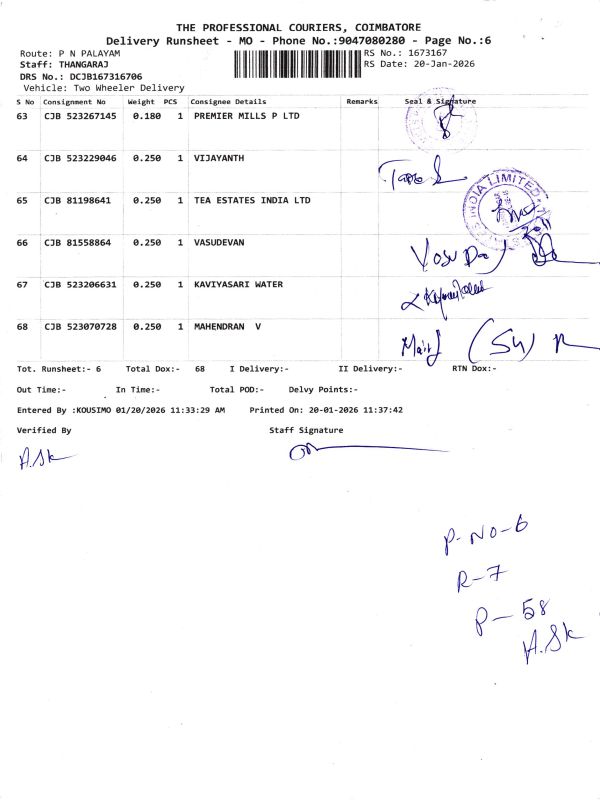 THE PROFESSIONAL COURIERS, COIMBATORE
Delivery Runsheet - MO - Phone No.:9047080280 - Page No.:6
Route: P N PALAYAM
RS No.: 1673167
Staff: THANGARAJ
RS Date: 20-Jan-2026
DRS No.: DCJB167316706
Vehicle: Two Wheeler Delivery
S No Consignment No Weight PCS Consignee Details Remarks Seal & Signature
63 CJB 523267145 0.180 1 PREMIER MILLS P LTD
64 CJB 523229046 0.250 1 VIJAYANTH
65 CJB 81198641 0.250 1 TEA ESTATES INDIA LTD
INDIA LIMITED
66 CJB 81558864 0.250 1 VASUDEVAN
67 CJB 523206631 0.250 1 KAVIYASARI WATER
68 CJB 523070728 0.250 1 MAHENDRAN V
Tot. Runsheet:- 6 Total Dox:- 68 I Delivery:- II Delivery:- RTN Dox:-
Out Time:- In Time:- Total POD:- Delvy Points:-
Entered By :KOUSIMO 01/20/2026 11:33:29 AM Printed On: 20-01-2026 11:37:42
Verified By Staff Signature
A.Sk
P-NO-6
R-7
P-58
A.Sk